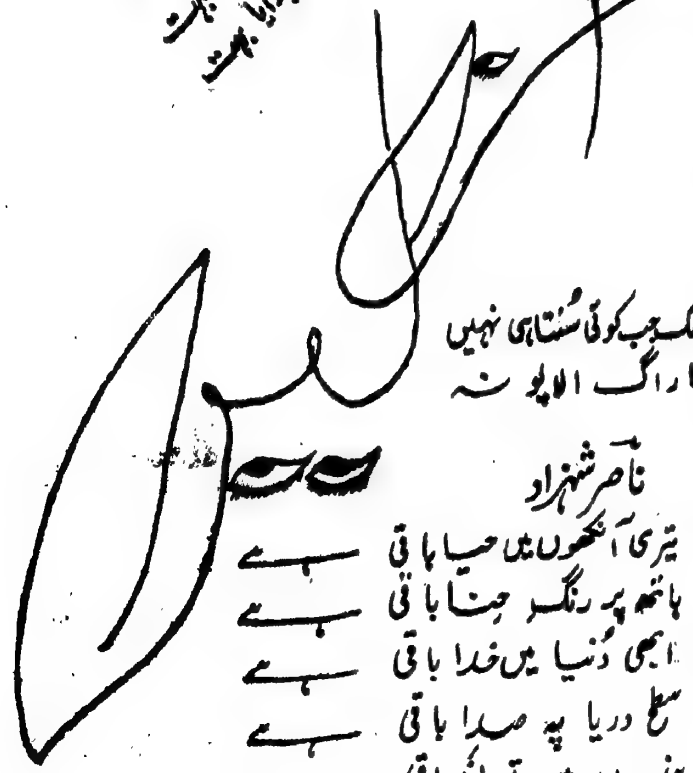 بہت
بہت
جب کوئی سُنتا ہی نہیں
راگ الاپو نہ
ناصر شہزاد
تیری آنکھوں میں حیا باقی ہے
ہاتھ پر رنگِ حنا باقی ہے
ابھی دُنیا میں خدا باقی ہے
سطحِ دریا پہ صدا باقی ہے